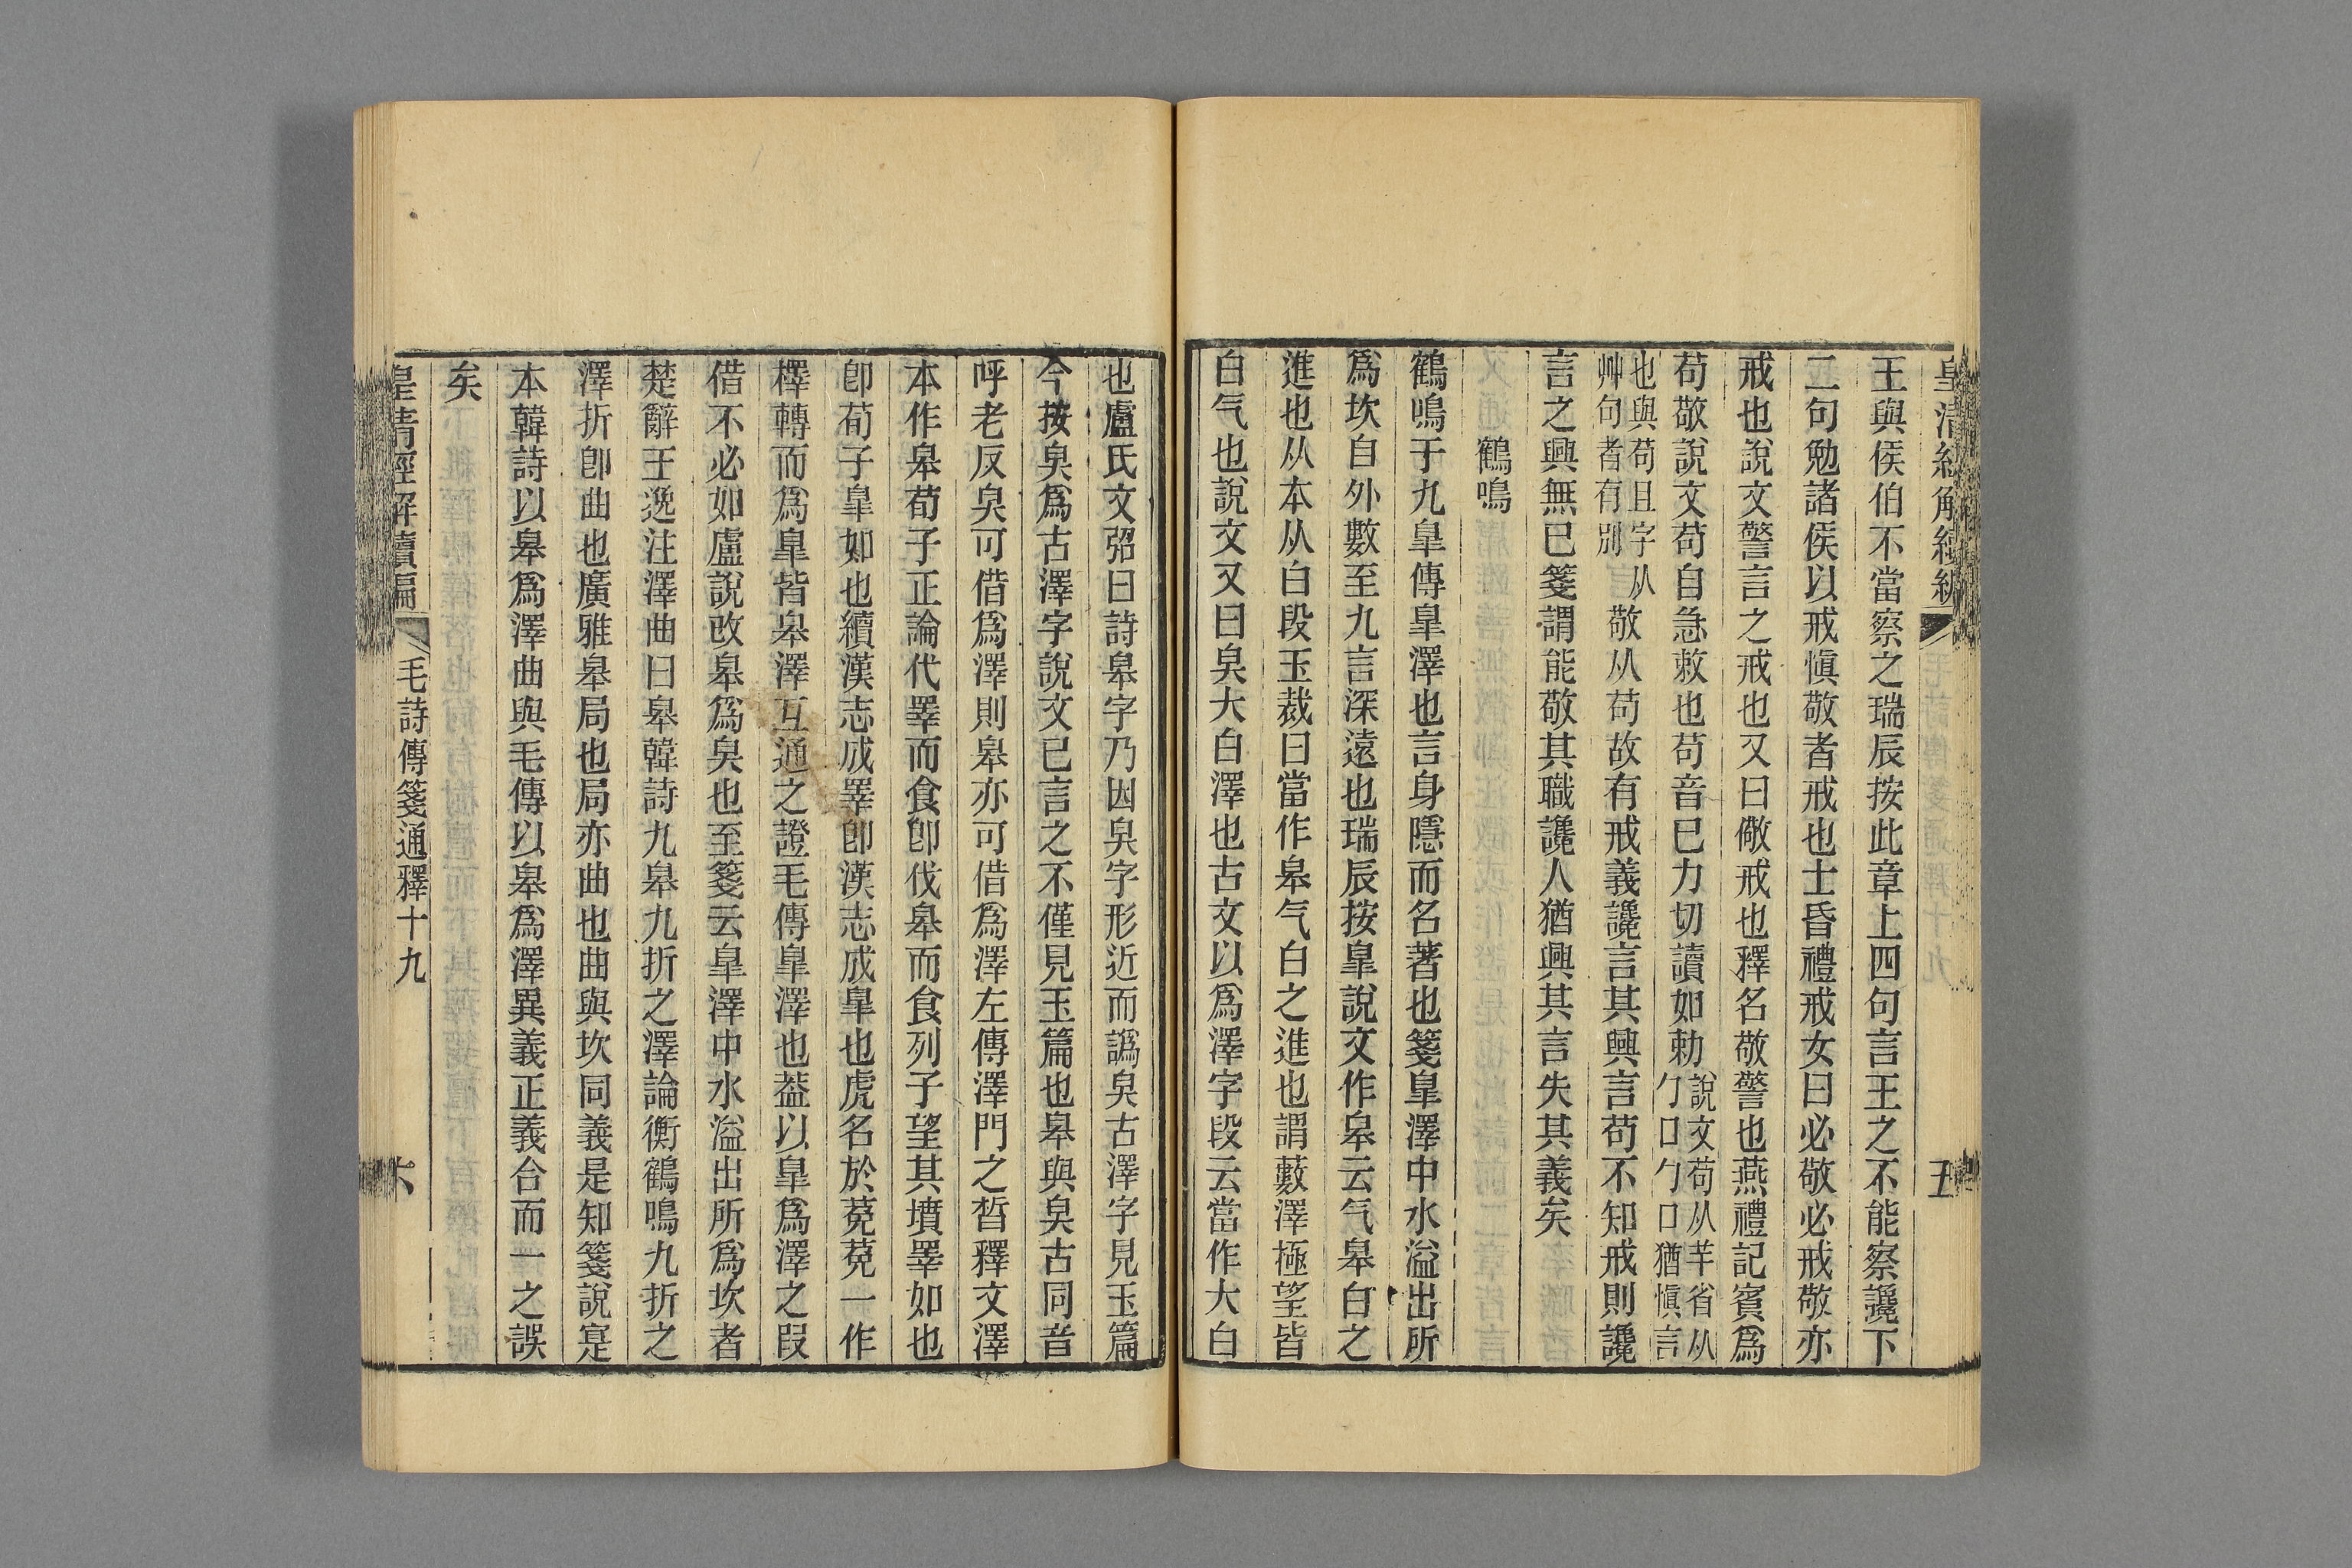 皇清經解續編 五
王與侯伯不當察之瑞辰按此章上四句言王之不能察讒下
二句勉諸侯以戒愼敬者戒也士昏禮戒女曰必敬必戒敬亦
戒也說文警言之戒也又曰儆戒也釋名敬警也燕禮記賓爲
苟敬說文苟自急敕也苟音已力切讀如勅說文苟从羊省从
勹口勹口猶愼言
也與苟且字从
艸句者有別敬从苟故有戒義讒言其興言苟不知戒則讒
言之興無已箋謂能敬其職讒人猶興其言失其義矣
鶴鳴
鶴鳴于九臯傳臯澤也言身隱而名著也箋臯澤中水溢出所
爲坎自外數至九言深遠也瑞辰按臯說文作皋云气皋白之
進也从本从白段玉裁曰當作皋气白之進也謂藪澤極望皆
白气也說文又曰臭大白澤也古文以爲澤字段云當作大白
也盧氏文弨曰詩皋字乃因臭字形近而譌臭古澤字見玉篇
今按臭爲古澤字說文已言之不僅見玉篇也皋與臭古同音
呼老反臭可借爲澤則皋亦可借爲澤左傳澤門之晳釋文澤
本作皋荀子正論代睪而食卽伐皋而食列子望其墳睪如也
卽荀子臯如也續漢志成睪卽漢志成臯也虎名於菟菟一作
檡轉而爲臯皆皋澤互通之證毛傳臯澤也葢以臯爲澤之叚
借不必如盧說改皋爲臭也至箋云臯澤中水溢出所爲坎者
楚辭王逸注澤曲曰皋韓詩九皋九折之澤論衡鶴鳴九折之
澤折卽曲也廣雅皋局也局亦曲也曲與坎同義是知箋說寔
本韓詩以皋爲澤曲與毛傳以皋爲澤異義正義合而一之誤
矣
皇清經解續編 毛詩傳箋通釋十九 六